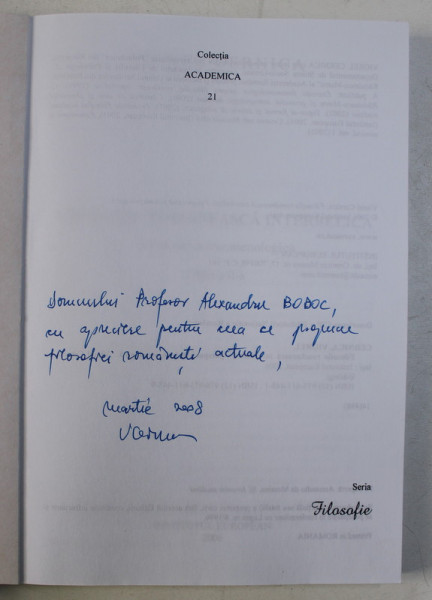 Colecția
ACADEMICA
21
Domnului Profesor Alexandru BOBOC,
cu apreciere pentru ceea ce propune
filosofiei românești actuale,
martie 2008
Seria
Filosofie